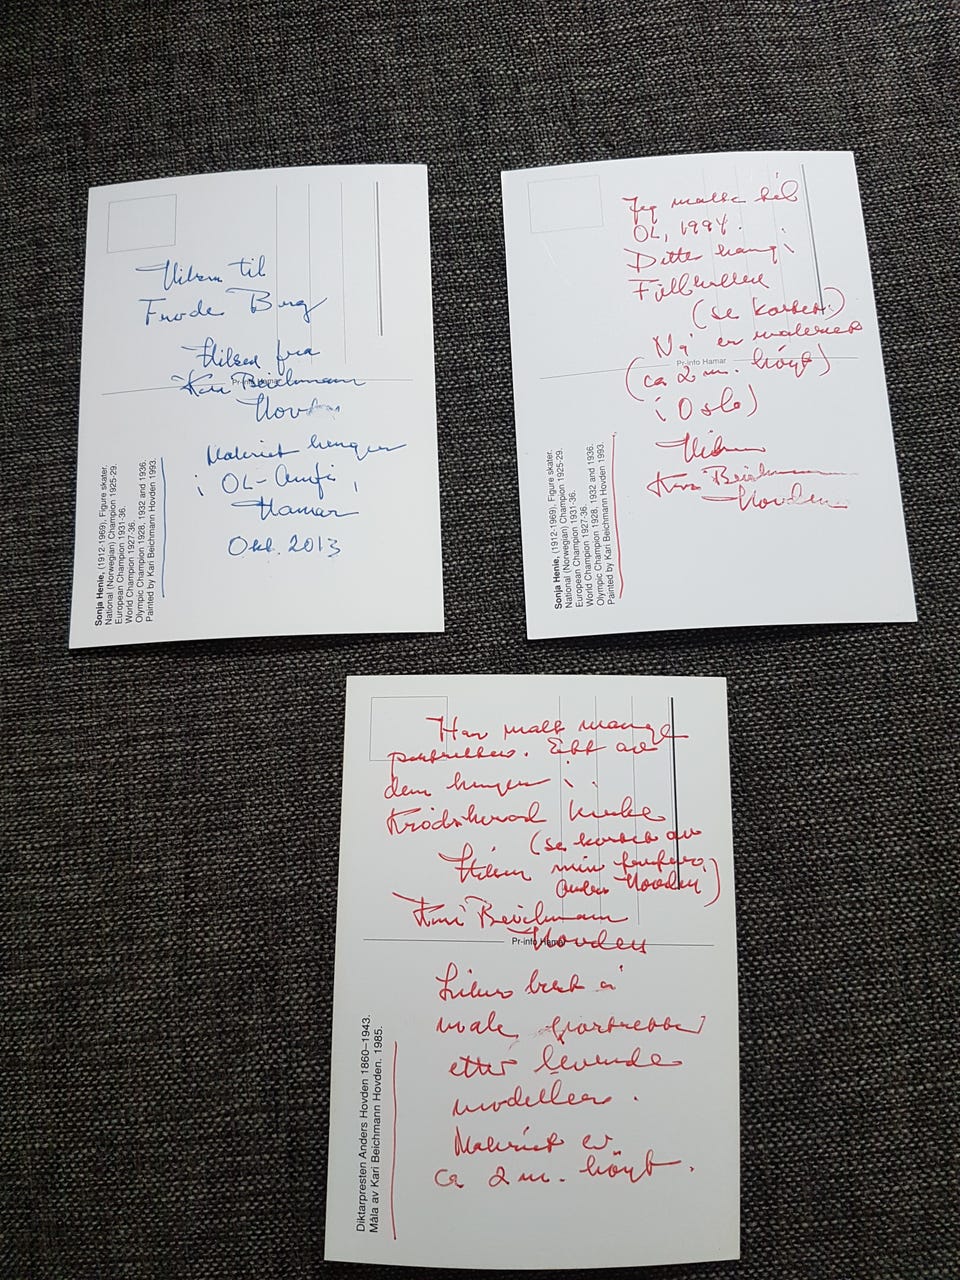 Hilsen til
Frode Berg
Hilsen fra
Kari Beichmann
Hovden
Maleriet henger
i OL-Amfi,
Hamar
Okt. 2013
Pr-info Hamar
Sonja Henie, (1912-1969), Figure skater.
National (Norwegian) Champion 1925-29.
European Champion 1931-36.
World Champion 1927-36.
Olympic Champion 1928, 1932 and 1936.
Painted by Kari Beichmann Hovden 1993.
Jeg malte til
OL, 1994.
Dette hang i
(se kortet)
Nå er maleriet
(ca 2 m. höyt)
i Oslo)
Hilsen
Kari Beichmann
Hovden
Pr-info Hamar
Sonja Henie, (1912-1969), Figure skater.
National (Norwegian) Champion 1925-29.
European Champion 1931-36.
World Champion 1927-36.
Olympic Champion 1928, 1932 and 1936.
Painted by Kari Beichmann Hovden 1993.
Har malt mange
portretter. Ett av
dem henger i
Krödsherad kirke
(se kortet av
min farfar,
Anders Hovden)
Hilsen
Kari Beichmann
Hovden
Pr-info Hamar
Liker best å
male portretter
etter levende
modeller.
Maleriet er
ca 2 m. höyt.
Diktarpresten Anders Hovden 1860–1943.
Måla av Kari Beichmann Hovden. 1985.